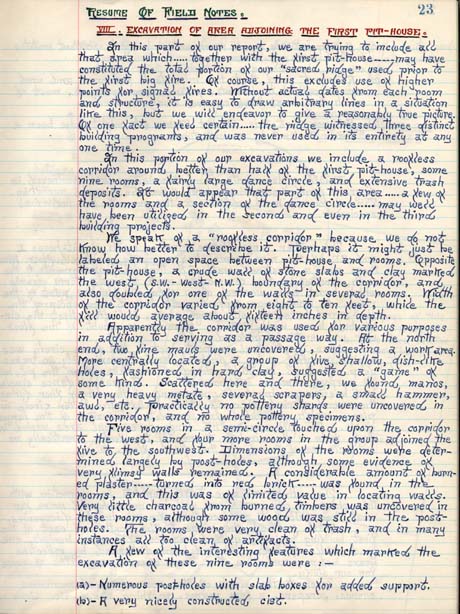 23
RESUME OF FIELD NOTES.
VIII. EXCAVATION OF AREA ADJOINING THE FIRST PIT-HOUSE.
In this part of our report, we are trying to include all
that area which.....together with the first pit-house.....may have
constituted the total portion of our "sacred ridge" used prior to
the first big fire. Of course, this excludes use of higher
points for signal fires. Without actual dates from each room
and structure, it is easy to draw arbitrary lines in a situation
like this, but we will endeavor to give a reasonably true picture.
Of one fact we feel certain.....the ridge witnessed three distinct
building programs, and was never used in its entirety at any
one time.
In this portion of our excavations we include a roofless
corridor around better than half of the first pit-house, some
nine rooms, a fairly large dance circle, and extensive trash
deposits. It would appear that part of this area.....a few of
the rooms and a section of the dance circle.....may well
have been utilized in the second and even in the third
building projects.
We speak of a "roofless corridor" because we do not
know how better to describe it. Perhaps it might just be
labeled an open space between pit-house and rooms. Opposite
the pit-house, a crude wall of stone slabs and clay marked
the west, (S.W.-West-N.W.) boundary of the corridor, and
also doubled for one of the walls in several rooms. Width
of the corridor varied from eight to ten feet, while the
fill would average about sixteen inches in depth.
Apparently the corridor was used for various purposes
in addition to serving as a passage way. At the north
end, two fine mauls were uncovered, suggesting a work area.
More centrally located, a group of five, shallow, dish-like
holes, fashioned in hard clay, suggested a "game" of
some kind. Scattered here and there, we found, manos,
a very heavy metate, several scrapers, a small hammer,
awl, etc. Practically no pottery shards were uncovered in
the corridor, and no whole pottery specimens.
Five rooms in a semi-circle touched upon the corridor
to the west, and four more rooms in the group adjoined the
five to the southwest. Dimensions of the rooms were deter-
mined largely by post-holes, although some evidence of
very flimsy walls remained. A considerable amount of burn-
ed plaster.....turned into red brick.....was found in the
rooms, and this was of limited value in locating walls.
Very little charcoal from burned timbers was uncovered in
these rooms, although some wood was still in the post-
holes. The rooms were very clean of trash, and in many
instances all too clean of artifacts.
A few of the interesting features which marked the
excavation of these nine rooms were :—
(a)- Numerous postholes with slab boxes for added support.
(b)- A very nicely constructed cist.